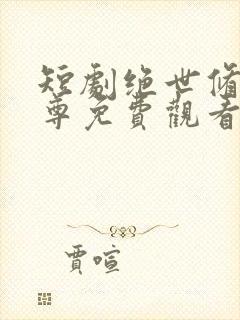 短劇绝世脩
尊免費觀看
賈喧